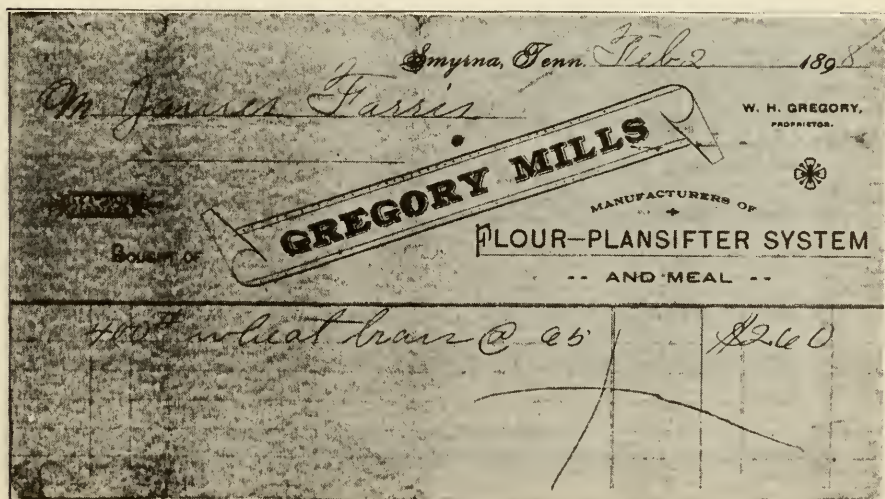 Smyrna, Tenn. Feb 2 1898
M James Farris
W. H. GREGORY,
PROPRIETOR.
GREGORY MILLS
MANUFACTURERS OF
BOUGHT OF
FLOUR-PLANSIFTER SYSTEM
-- AND MEAL --
400# wheat bran @ 65 $2.60